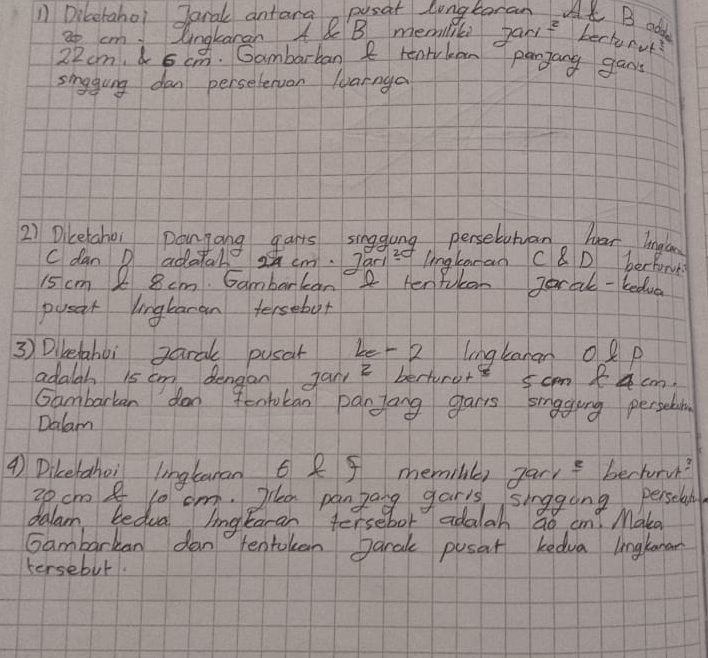 1) Diketahoi Jarak antara pusat lingkaran A & B adalah
20 cm. lingkaran A & B memiliki jari² berturut²
22 cm. & 6 cm. Gambarkan & tentukan panjang garis
singgung dan persekutuan luarnya
2) Diketahoi Panjang garis singgung persekutuan luar lingkaran
C dan D adalah 24 cm. Jari² lingkaran C & D berturut²
15 cm & 8 cm. Gambarkan & tentukan jarak-kedua
pusat lingkaran tersebut
3) Diketahui jarak pusat ke-2 lingkaran O & P
adalah 15 cm dengan jari² berturut² 5 cm & 4 cm.
Gambarkan dan tentukan panjang garis singgung persekutuan
Dalam
4) Diketahoi lingkaran E & F memiliki jari² berturut²
20 cm & 10 cm. Jika panjang garis singgung persekutuan
dalam kedua lingkaran tersebut adalah 40 cm. Maka
Gambarkan dan tentukan jarak pusat kedua lingkaran
tersebut.